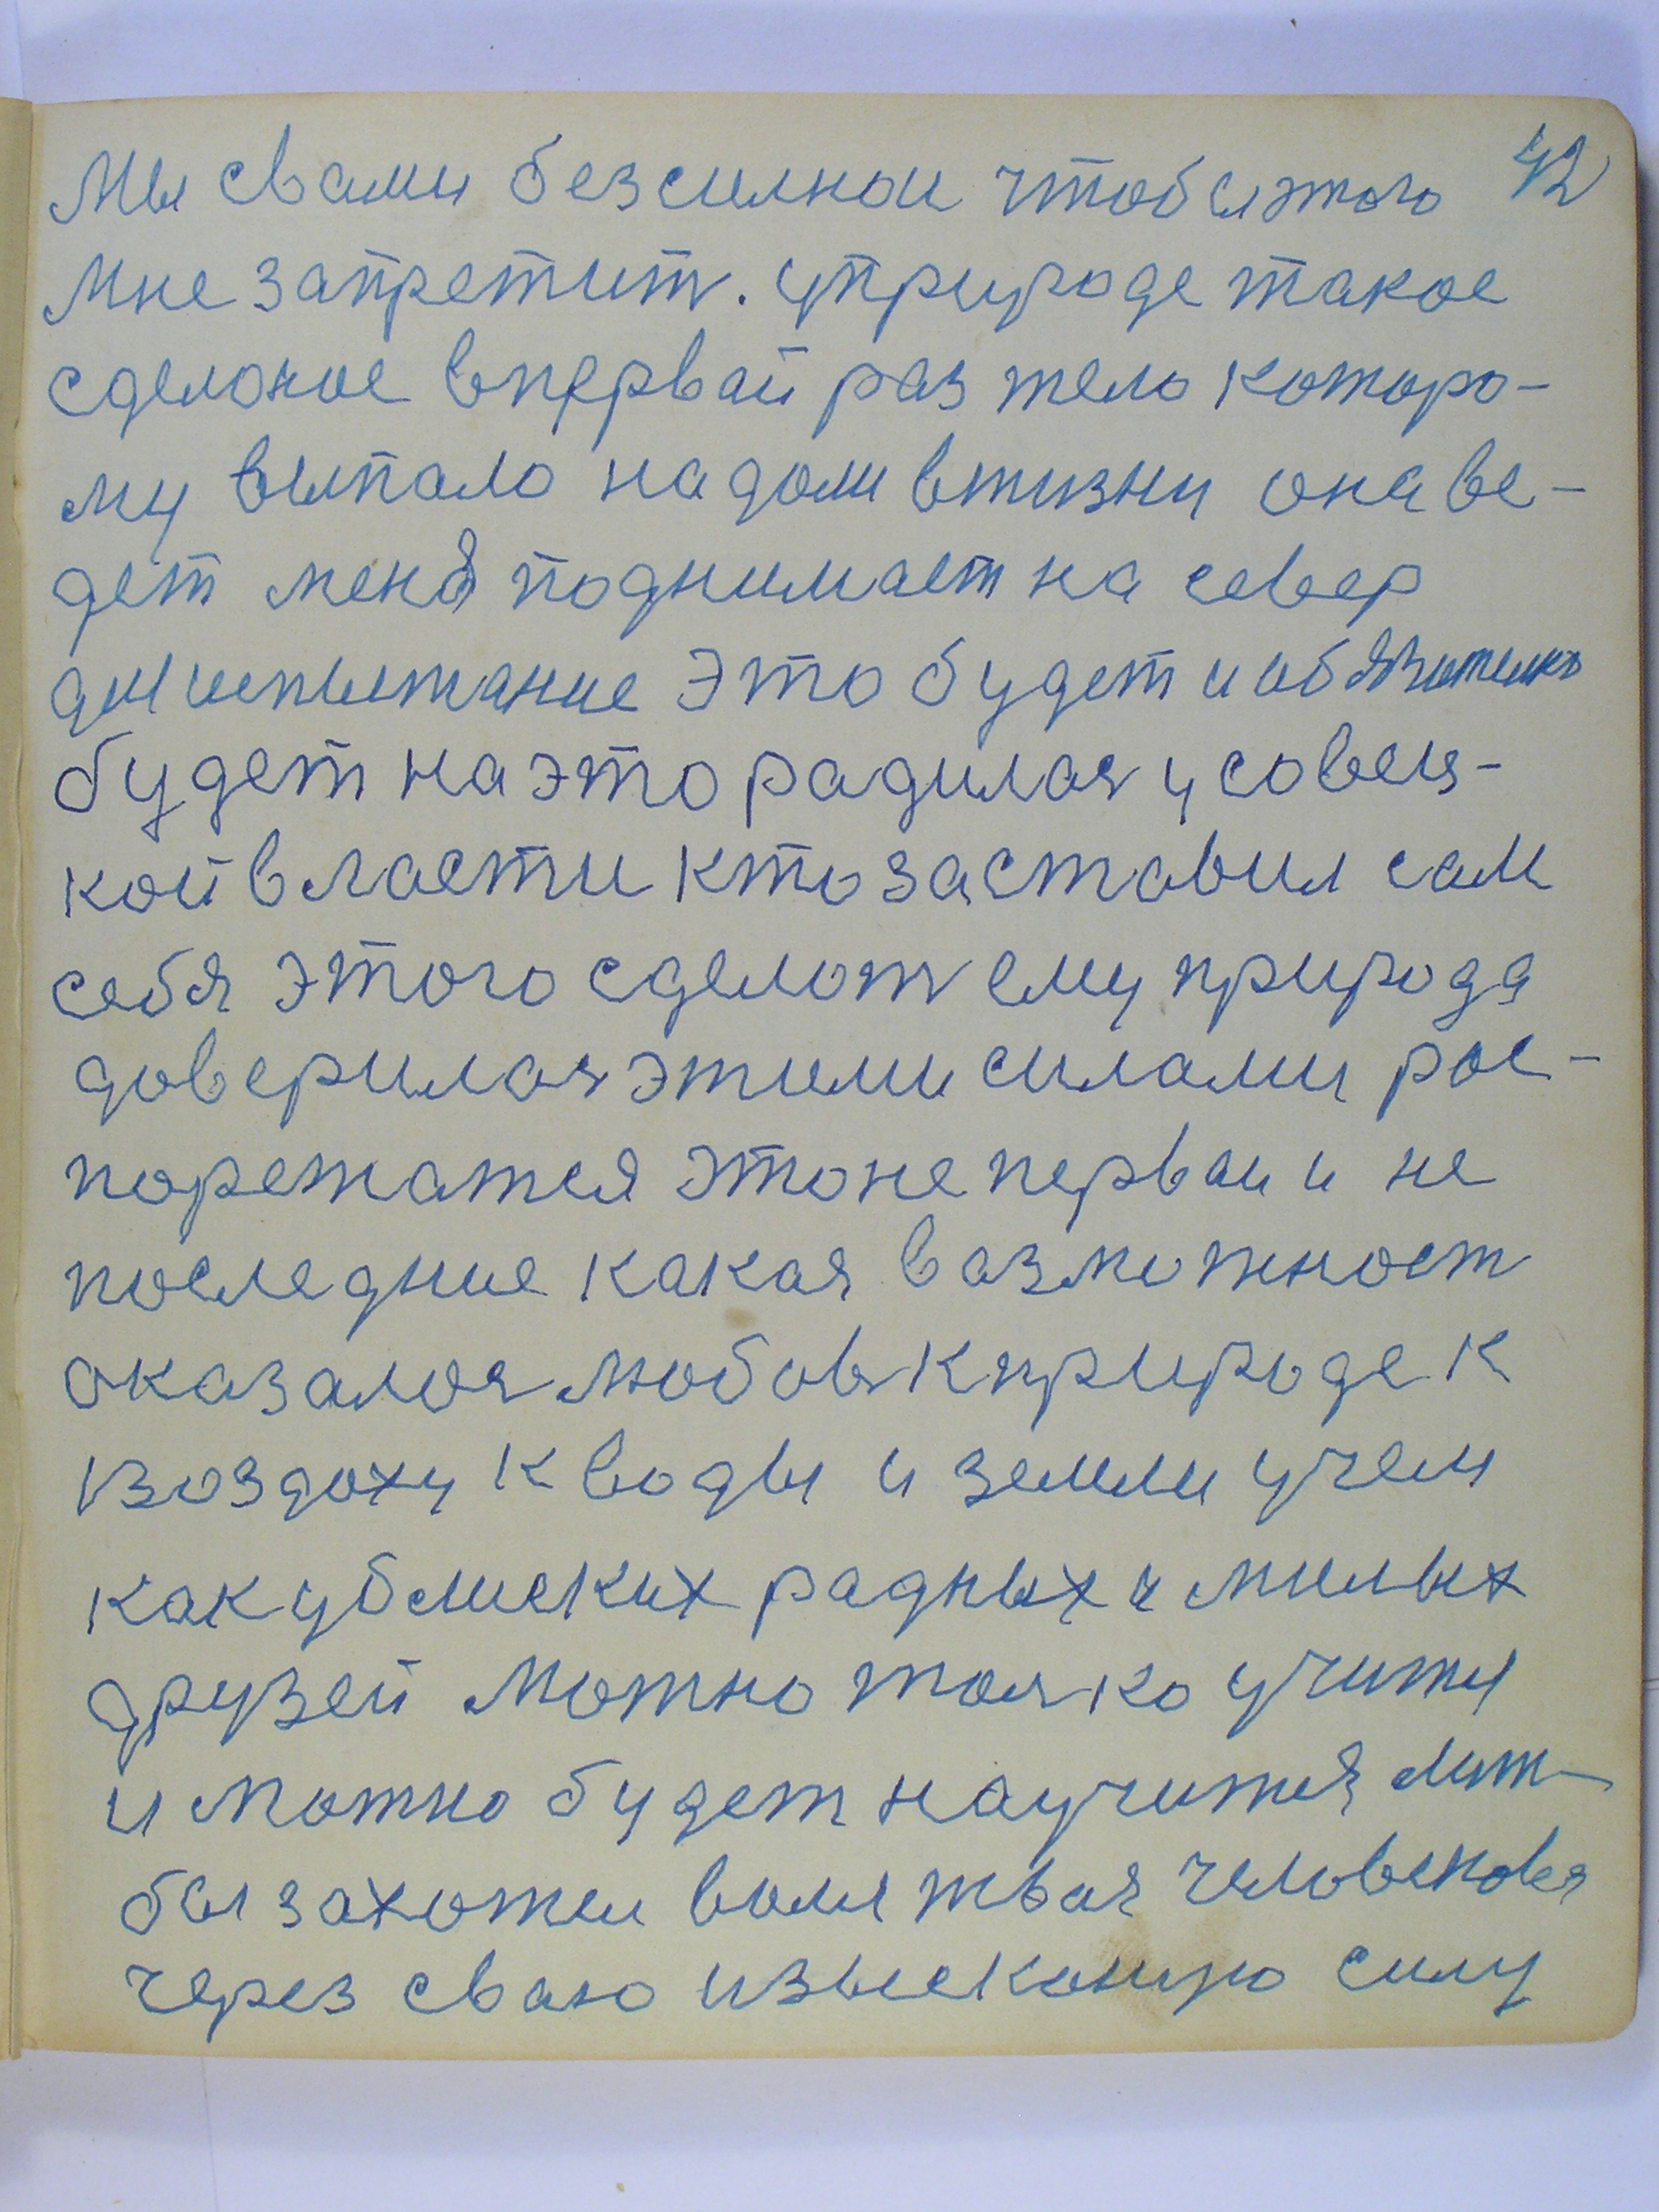 42
Мы свами безсилнои чтобы этого
мне запретит. уприроде такое
сделоное впервай раз тело которо-
му выпало на доли вжизни она ве-
дет меня поднимает на север
для испытание это будет и обязотелно
будет на это радилас у совец-
кой власти кто заставил сам
себя этого сделот ему природа
доверилас этими силами рос-
порежатся это не перваи и не
последние какая возможност
оказалос любов к природе к
воздоху к воды и земли учем
как у блиских радных и милых
друзей можно толко учится
и можно будет научится лиш-
бы захотел воля твоя человекова
через сваю изысконую силу